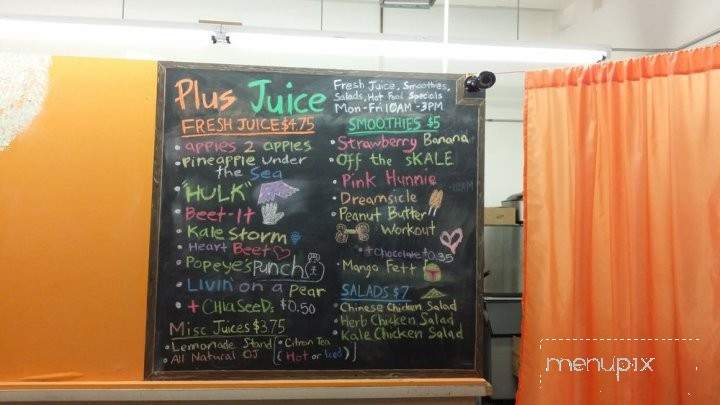 Plus Juice
Fresh Juice, Smoothies,
Salads, Hot Food Specials
Mon-Fri 10AM-3PM
FRESH JUICE $4.75
apples 2 apples
Pineapple under
the Sea
"HULK"
Beet-It
Kale Storm
Heart Beet
Popeye's Punch
Livin' on a Pear
+ Chia Seeds $0.50
Misc Juices $3.75
Lemonade Stand
All Natural OJ
Citron Tea
(Hot or Iced)
SMOOTHIES $5
Strawberry Banana
Off the sKALE
Pink Hunnie
Dreamsicle
Peanut Butter
Workout
+Chocolate $0.35
Mango Fett
SALADS $7
Chinese Chicken Salad
Herb Chicken Salad
Kale Chicken Salad
menupix